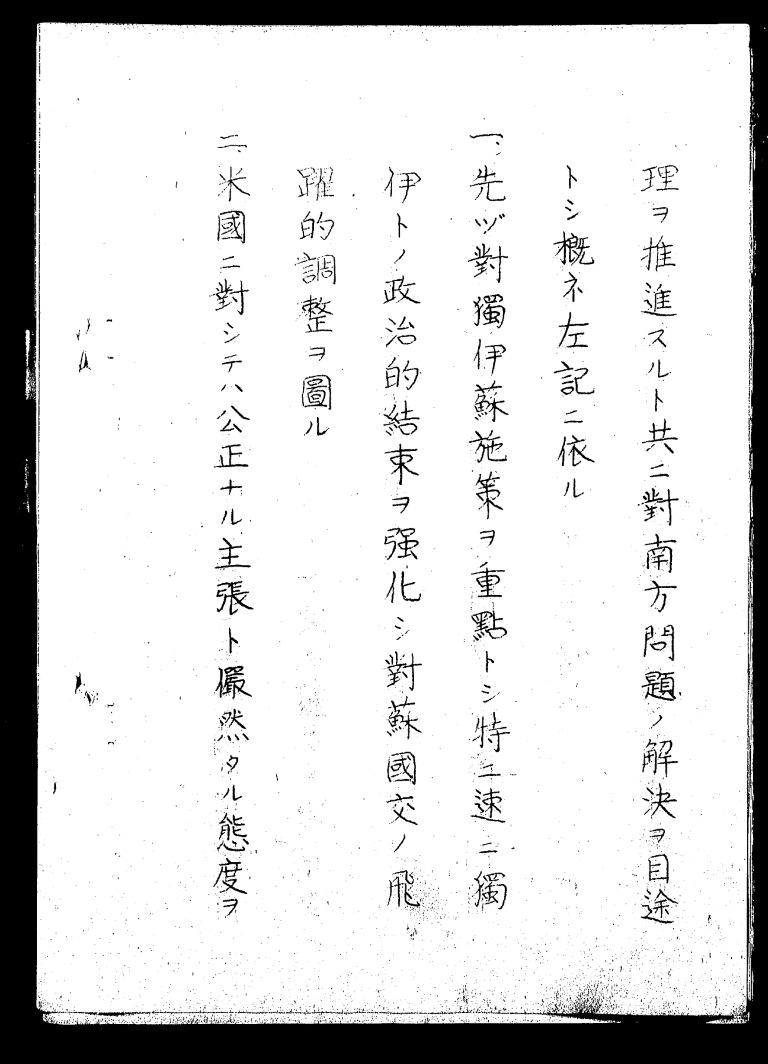 理ヲ推進スルト共ニ對南方問題ノ解決ヲ目途
トシ概ネ左記ニ依ル
一、先ヅ對獨伊蘇施策ヲ重點トシ特ニ速ニ獨
伊トノ政治的結束ヲ强化シ對蘇國交ノ飛
躍的調整ヲ圖ル
二、米國ニ對シテハ公正ナル主張ト儼然タル態度ヲ